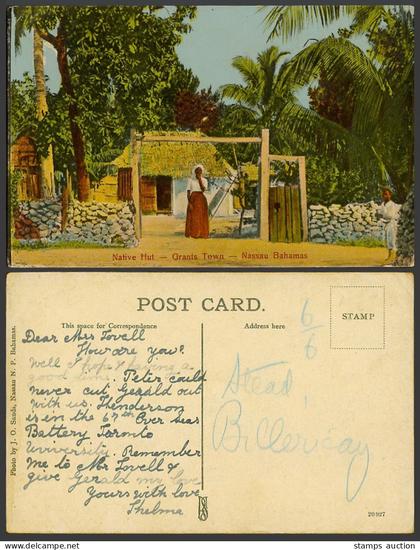 Native Hut — Grants Town — Nassau Bahamas
POST CARD.
This space for Correspondence
Address here
STAMP
Photo by J. O. Sands, Nassau N. P. Bahamas.
Dear Mrs Lovell
How are you?
Well I hope & having a
good time. Peter could
never cut Gerald out
with us. Henderson
is in the 67th Over Seas
Battery Toronto
University. Remember
me to Mr Lovell &
give Gerald my love
Yours with love
Thelma
6/6
Stead,
Billericay
20927
© stamps auction